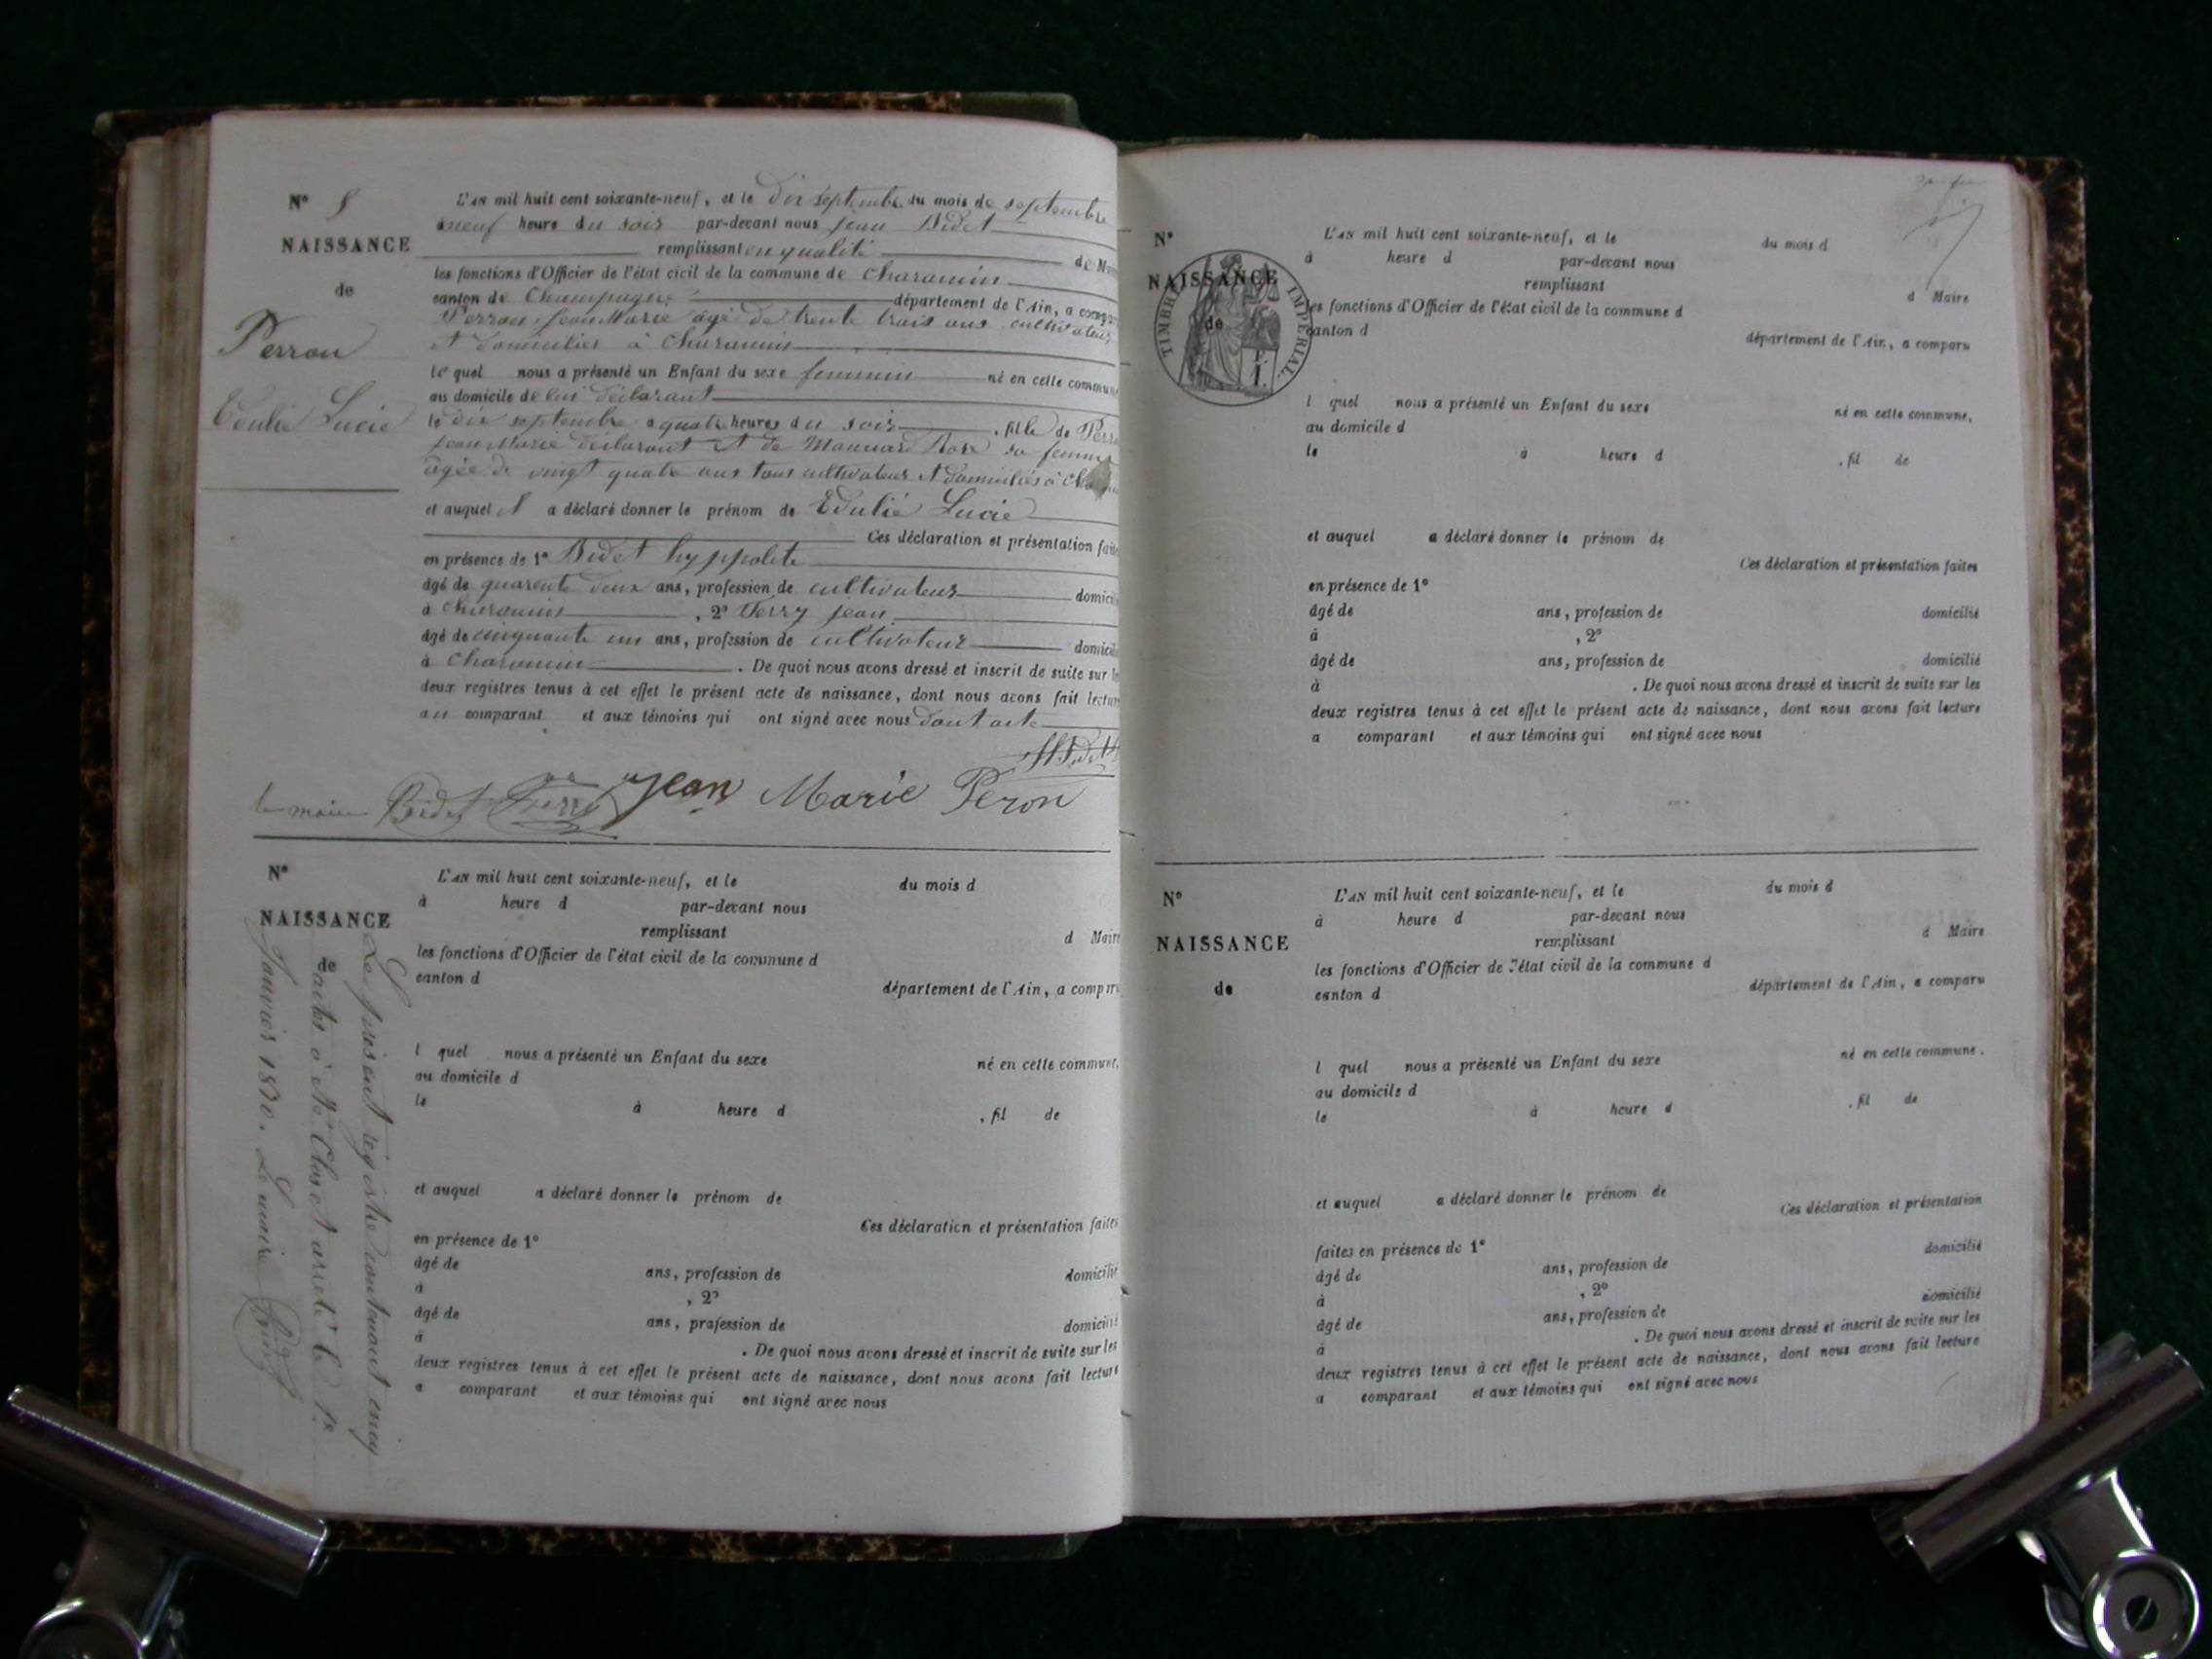 N° 5
NAISSANCE
de
Perron
Edulie Lucie
L'AN mil huit cent soixante-neuf, et le dix septembre du mois de septembre
à neuf heure du soir par-devant nous jean Bidet
remplissant en qualité de
les fonctions d'Officier de l'état civil de la commune de Charancin
canton de Champagne département de l'Ain, a comp
Perron jean Marie âgé de trente trois ans cultivateur
et domicilier à Charancin
le quel nous a présenté un Enfant du sexe feminin né en cette commun
au domicile de lui déclarant
le dix septembre a quatre heures du soir , fille de Perr
jean Marie déclarant et de Rose sa femme
âgée de vingt quatre ans tous cultivateurs et domiciliés à Ch
et auquel il a déclaré donner le prénom de Edulie Lucie
Ces déclaration et présentation faite
en présence de 1° Bidet hyppolite
âgé de quarente deux ans, profession de cultivateur domicil
à Charancin , 2° Ferry jean
âgé de cinquante un ans, profession de cultivateur domicil
à Charancin . De quoi nous avons dressé et inscrit de suite sur le
deux registres tenus à cet effet le présent acte de naissance, dont nous avons fait lectur
au comparant et aux témoins qui ont signé avec nous dont acte
le maire Bidet Ferry jean Marie Peron
N°
NAISSANCE
de
L'AN mil huit cent soixante-neuf, et le du mois d
à heure d par-devant nous
remplissant d Maire
les fonctions d'Officier de l'état civil de la commune d
canton d département de l'Ain, a comparu
l quel nous a présenté un Enfant du sexe né en cette commune,
au domicile d
le à heure d , fil de
et auquel a déclaré donner le prénom de
Ces déclaration et présentation faites
en présence de 1°
âgé de ans, profession de domicilié
à , 2°
âgé de ans, profession de domicilié
à . De quoi nous avons dressé et inscrit de suite sur les
deux registres tenus à cet effet le présent acte de naissance, dont nous avons fait lecture
a comparant et aux témoins qui ont signé avec nous
Le présent registre contenant cinq
actes a été Clos et arreté le 1er
Janvier 1870. Le maire Bidet
N°
NAISSANCE
de
TIMBRE IMPERIAL
1 F.
L'AN mil huit cent soixante-neuf, et le du mois d
à heure d par-devant nous
remplissant d Maire
les fonctions d'Officier de l'état civil de la commune d
canton d département de l'Ain, a comparu
l quel nous a présenté un Enfant du sexe né en cette commune,
au domicile d
le à heure d , fil de
et auquel a déclaré donner le prénom de
Ces déclaration et présentation faites
en présence de 1°
âgé de ans, profession de domicilié
à , 2°
âgé de ans, profession de domicilié
à . De quoi nous avons dressé et inscrit de suite sur les
deux registres tenus à cet effet le présent acte de naissance, dont nous avons fait lecture
a comparant et aux témoins qui ont signé avec nous
N°
NAISSANCE
de
L'AN mil huit cent soixante-neuf, et le du mois d
à heure d par-devant nous
remplissant d Maire
les fonctions d'Officier de l'état civil de la commune d
canton d département de l'Ain, a comparu
l quel nous a présenté un Enfant du sexe né en cette commune.
au domicile d
le à heure d , fil de
et auquel a déclaré donner le prénom de
Ces déclaration et présentation
faites en présence de 1°
âgé de ans, profession de domicilié
à , 2°
âgé de ans, profession de domicilié
à . De quoi nous avons dressé et inscrit de suite sur les
deux registres tenus à cet effet le présent acte de naissance, dont nous avons fait lecture
a comparant et aux témoins qui ont signé avec nous